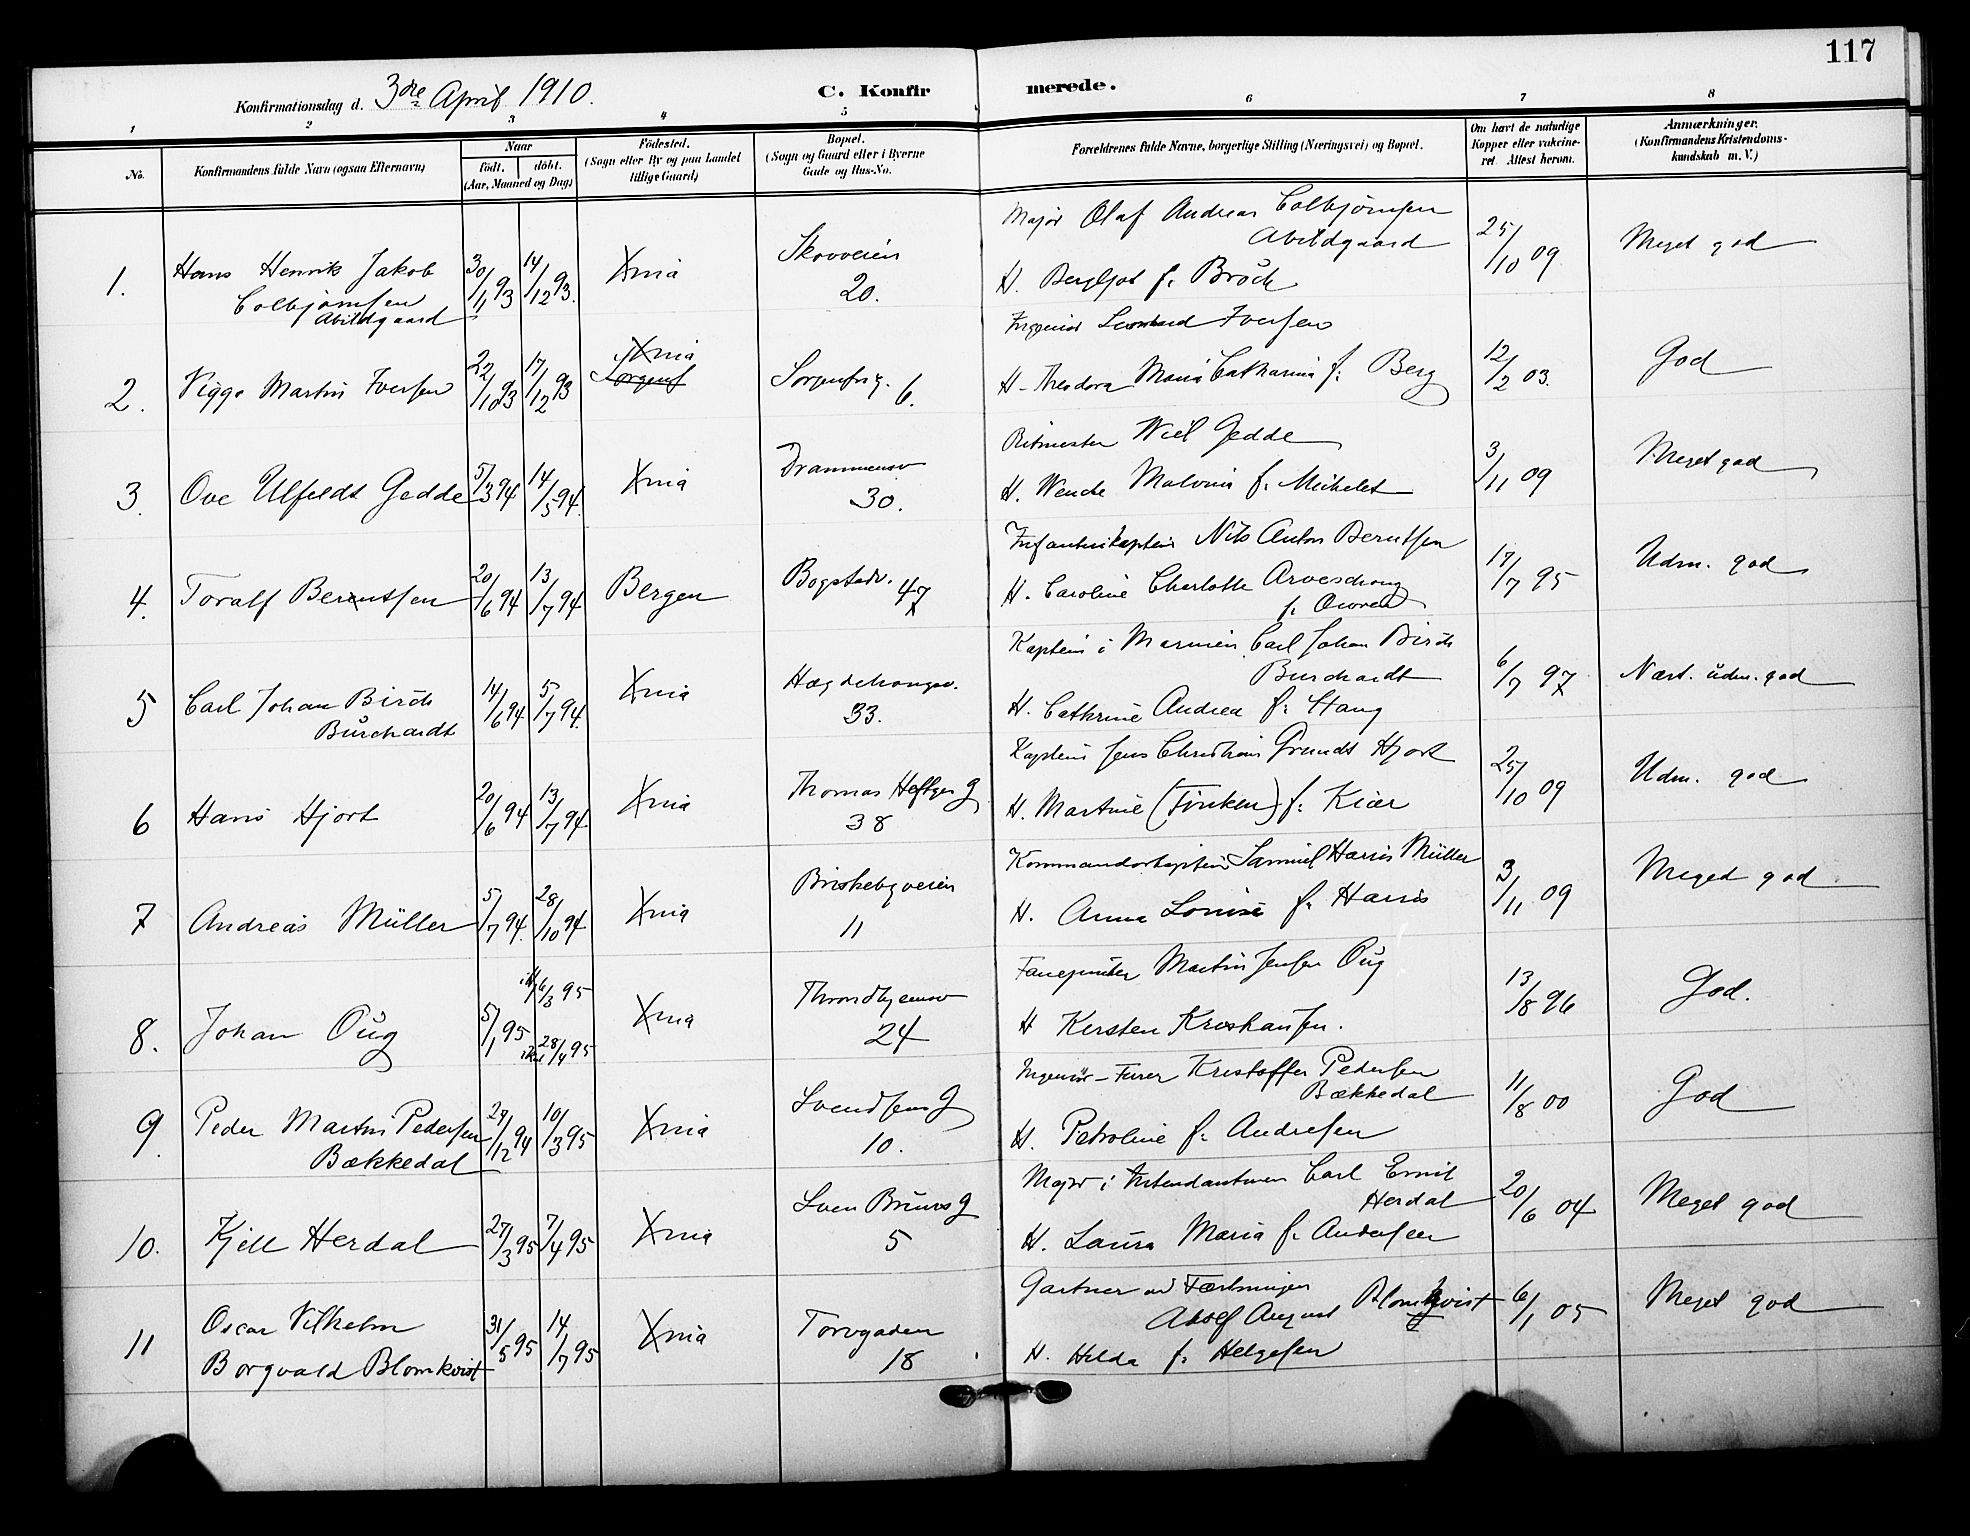 117
Konfirmationsdag d. 3dre April 1910.
C. Konfirmerede.
1 2 3 4 5 6 7 8
No.
Konfirmandens fulde Navn (ogsaa Efternavn)
Naar
født. døbt.
(Aar, Maaned og Dag)
Fødested.
(Sogn eller By og paa Landet
tillige Gaard)
Bopæl.
(Sogn og Gaard eller i Byerne
Gade og Hus-No.
Forældrenes fulde Navne, borgerlige Stilling (Næringsvei) og Bopæl.
Om havt de naturlige
Kopper eller vakcine-
ret. Attest herom.
Anmærkninger.
(Konfirmandens Kristendoms-
kundskab m. V.)
1. Hans Henrik Jakob
Colbjørnsen
Abildgaard
30/1 93 14/12 93. Xnia
Skovveien
20.
Major Olaf Andreas Colbjørnsen
Abildgaard
H. Bergljot f. Broch
25/10 09 Meget god
2. Viggo Martin Iversen 22/10 93 17/12 93
Xnia
Sorgenf
Sorgenfrig. 6.
Ingeniør Iversen
H. Theodora Maria Catharina f. Berg
12/2 03. God
3. Ove Ulfeldt Gedde 5/3 94 14/5 94. Xnia
Drammensv
30.
Ritmester Wiel Gedde
H. Wenche Malvina f. Michelet
3/11 09 Meget god
4. Toralf Berentsen 20/6 94 13/7 94 Bergen
Bogstadv. 47
Infanterikaptein Nils Anton Berntsen
H. Caroline Charlotte
17/7 95 Udm. god
5 Carl Johan Birch
Burchardt
14/6 94 5/7 94. Xnia
Hægdehaugsv.
33.
Kaptein i Marinen Carl Johan Birch
Burchardt
H. Cathrine Andrea f. Haug
6/7 97 Næst. udm. god
6 Hans Hjort 20/6 94 13/7 94 Xnia
Thomas Heftyes G
38
Kaptein Jens Christian Grundt Hjort
H. Martine (Tinken) f. Kiær
25/10 09 Udm. god
7 Andreas Müller 5/7 94. 28/10 94 Xnia
Briskebyveien
11
Kommandørkaptein Samuel Harris Müller
H. Anna Louise f. Harris
3/11 09 Meget god
8. Johan Oug 5/1 95 6/3 95
28/4 95 Xnia
Throndhjemsv
24
Martin Jensen Oug
H Kersten
13/8 96 God.
9. Peder Martin Pedersen
Bækkedal
29/12 94 10/3 95 Xnia
Svendsens G
10.
Ingeniør-Furer Kristoffer Pedersen
Bækkedal
H. Petroline f. Andresen
11/8 00 God
10. Kjell Herdal 27/3 95 7/4 95 Xnia
Sven Bruns G
5
Major i Intendanturen Carl Emil
Herdal
H. Laura Maria f. Andersen
20/6 04 Meget god
11 Oscar Vilhelm
Borgvald Blomkvist
31/5 95 14/7 95 Xnia
Torvgaden
18
Gartner ved Fæstningen
Adolf August Blomkvist
H. Hilda f. Helgesen
6/1 05 Meget god